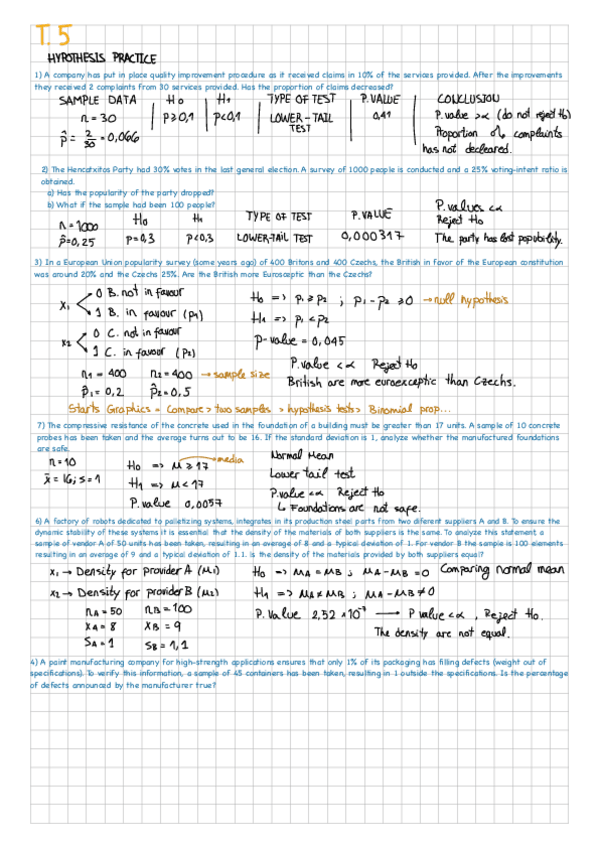 T. 5
HYPOTHESIS PRACTICE
1) A company has put in place quality improvement procedure as it received claims in 10% of the services provided. After the improvements
they received 2 complaints from 30 services provided. Has the proportion of claims decreased?
SAMPLE DATA H0 H1 TYPE OF TEST P.VALUE CONCLUSION
n = 30 p≥0,1 p<0,1 LOWER-TAIL TEST 0,41 P.value >α (do not reject H0)
p̂ = 2/30 = 0,066 Proportion of complaints
has not decleared.
2) The Hencatxitos Party had 30% votes in the last general election. A survey of 1000 people is conducted and a 25% voting-intent ratio is
obtained.
a) Has the popularity of the party dropped?
b) What if the sample had been 100 people?
n=1000 H0 H1 TYPE OF TEST P.VALUE P.values <α
Reject H0
p̂=0,25 p=0,3 p<0,3 LOWER-TAIL TEST 0,000317 The party has lost popubility.
3) In a European Union popularity survey (some years ago) of 400 Britons and 400 Czechs, the British in favor of the European constitution
was around 20% and the Czechs 25%. Are the British more Eurosceptic than the Czechs?
x1 0 B. not in favour
1 B. in favour (p1)
x2 0 C. not in favour
1 C. in favour (p2)
H0 => p1 ≥ p2 ; p1 - p2 ≥ 0 → null hypothesis
H1 => p1 < p2
p-value = 0,045
n1 = 400 n2 = 400 → sample size
p̂1 = 0,2 p̂2 = 0,5
P.value <α Reject H0
British are more euroexceptic than Czechs.
Starts Graphics = Compare > two samples > hypothesis tests > Binomial prop...
7) The compressive resistance of the concrete used in the foundation of a building must be greater than 17 units. A sample of 10 concrete
probes has been taken and the average turns out to be 16. If the standard deviation is 1, analyze whether the manufactured foundations
are safe.
n = 10
x̄ = 16; s = 1
H0 => μ ≥ 17 → media
H1 => μ < 17
P. value 0,0057
Normal Mean
Lower tail test
P.value <α Reject H0
↳ Foundations are not safe.
6) A factory of robots dedicated to palletizing systems, integrates in its production steel parts from two diferent suppliers A and B. To ensure the
dynamic stability of these systems it is essential that the density of the materials of both suppliers is the same. To analyze this statement, a
sample of vendor A of 50 units has been taken, resulting in an average of 8 and a typical deviation of 1. For vendor B the sample is 100 elements
resulting in an average of 9 and a typical deviation of 1.1. Is the density of the materials provided by both suppliers equal?
x1 → Density for provider A (μ1) H0 => μA = μB ; μA - μB = 0 Comparing normal mean
x2 → Density for provider B (μ2) H1 => μA ≠ μB ; μA - μB ≠ 0
nA = 50 nB = 100 P. Value 2,52 × 10⁻⁷ → P value <α , Reject H0.
xA = 8 xB = 9 The density are not equal.
SA = 1 SB = 1,1
4) A paint manufacturing company for high-strength applications ensures that only 1% of its packaging has filling defects (weight out of
specifications). To verify this information, a sample of 45 containers has been taken, resulting in 1 outside the specifications. Is the percentage
of defects announced by the manufacturer true?